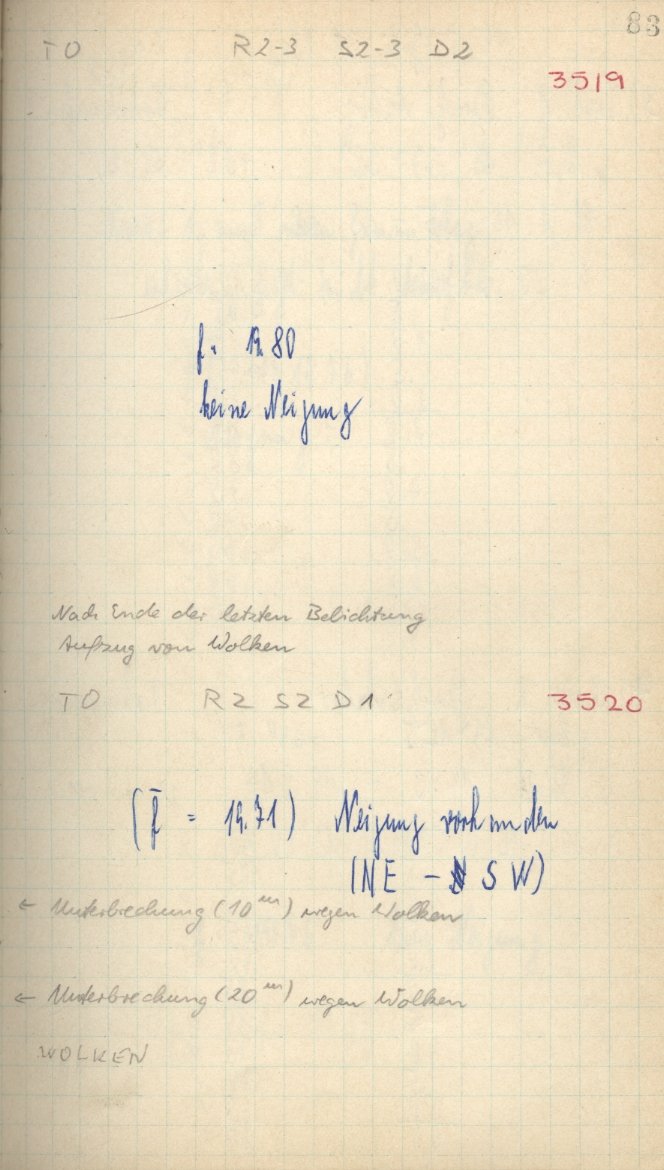 83
T0 R2-3 S2-3 D2
3519
f = 19.80
keine Neigung
Nach Ende der letzten Belichtung
Aufzug von Wolken
T0 R2 S2 D1
3520
(f̄ = 19.71) Neigung vorhanden
(NE - SW)
← Unterbrechung (10ᵐ) wegen Wolken
← Unterbrechung (20ᵐ) wegen Wolken
WOLKEN